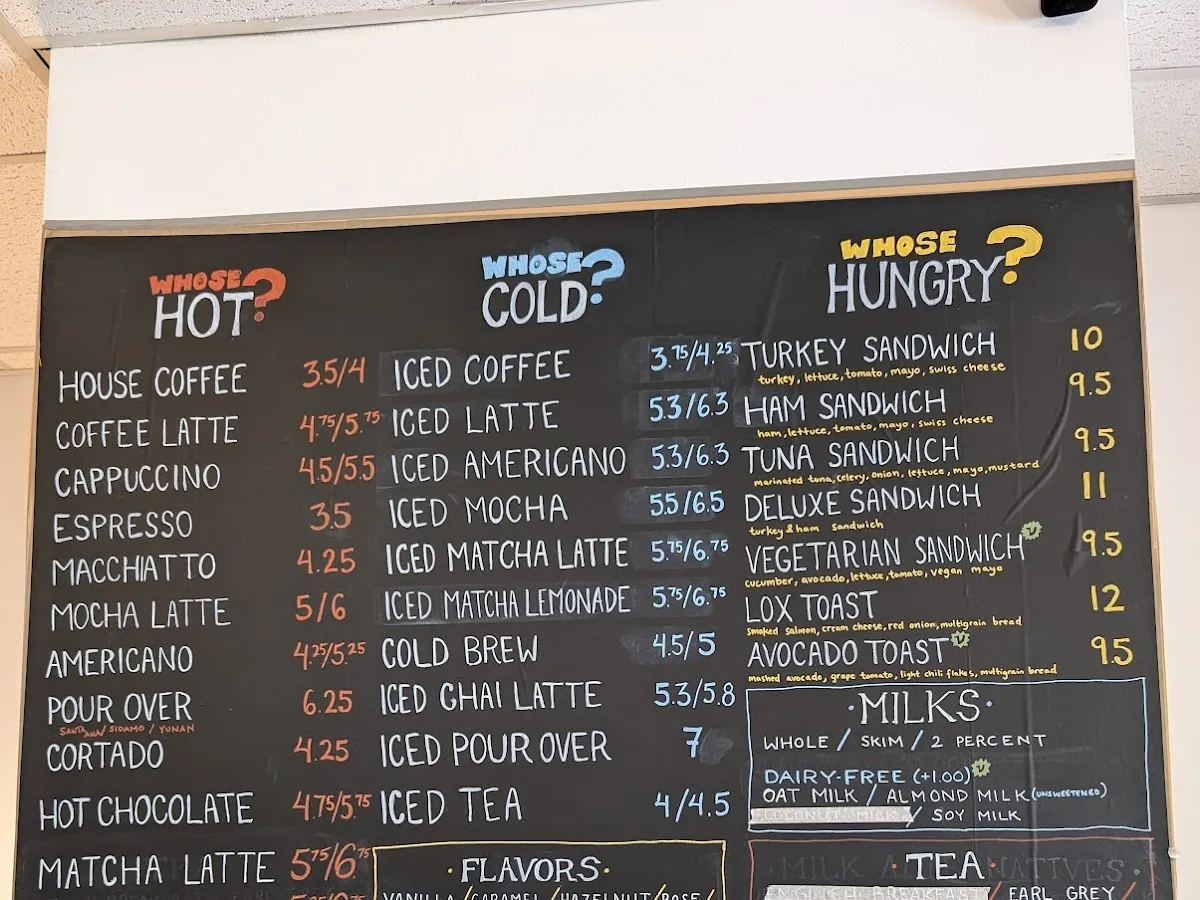 WHOSE
HOT?
HOUSE COFFEE 3.5/4
COFFEE LATTE 4.75/5.75
CAPPUCCINO 4.5/5.5
ESPRESSO 3.5
MACCHIATTO 4.25
MOCHA LATTE 5/6
AMERICANO 4.25/5.25
POUR OVER 6.25
SANTA ANA/ SIDAMO / YUNAN
CORTADO 4.25
HOT CHOCOLATE 4.75/5.75
MATCHA LATTE 5.75/6.75
WHOSE
COLD?
ICED COFFEE 3.75/4.25
ICED LATTE 5.3/6.3
ICED AMERICANO 5.3/6.3
ICED MOCHA 5.5/6.5
ICED MATCHA LATTE 5.75/6.75
ICED MATCHA LEMONADE 5.75/6.75
COLD BREW 4.5/5
ICED CHAI LATTE 5.3/5.8
ICED POUR OVER 7
ICED TEA 4/4.5
·FLAVORS·
VANILLA / CARAMEL / HAZELNUT / ROSE /
WHOSE
HUNGRY?
TURKEY SANDWICH 10
turkey, lettuce, tomato, mayo, swiss cheese
HAM SANDWICH 9.5
ham, lettuce, tomato, mayo, swiss cheese
TUNA SANDWICH 9.5
marinated tuna, celery, onion, lettuce, mayo, mustard
DELUXE SANDWICH 11
turkey & ham sandwich
VEGETARIAN SANDWICH V 9.5
cucumber, avocado, lettuce, tomato, vegan mayo
LOX TOAST 12
smoked salmon, cream cheese, red onion, multigrain bread
AVOCADO TOAST V 9.5
mashed avocado, grape tomato, light chili flakes, multigrain bread
·MILKS·
WHOLE / SKIM / 2 PERCENT
DAIRY-FREE (+1.00) V
OAT MILK / ALMOND MILK (UNSWEETENED)
COCONUT MILK / SOY MILK
·TEA·
ENGLISH BREAKFAST / EARL GREY /